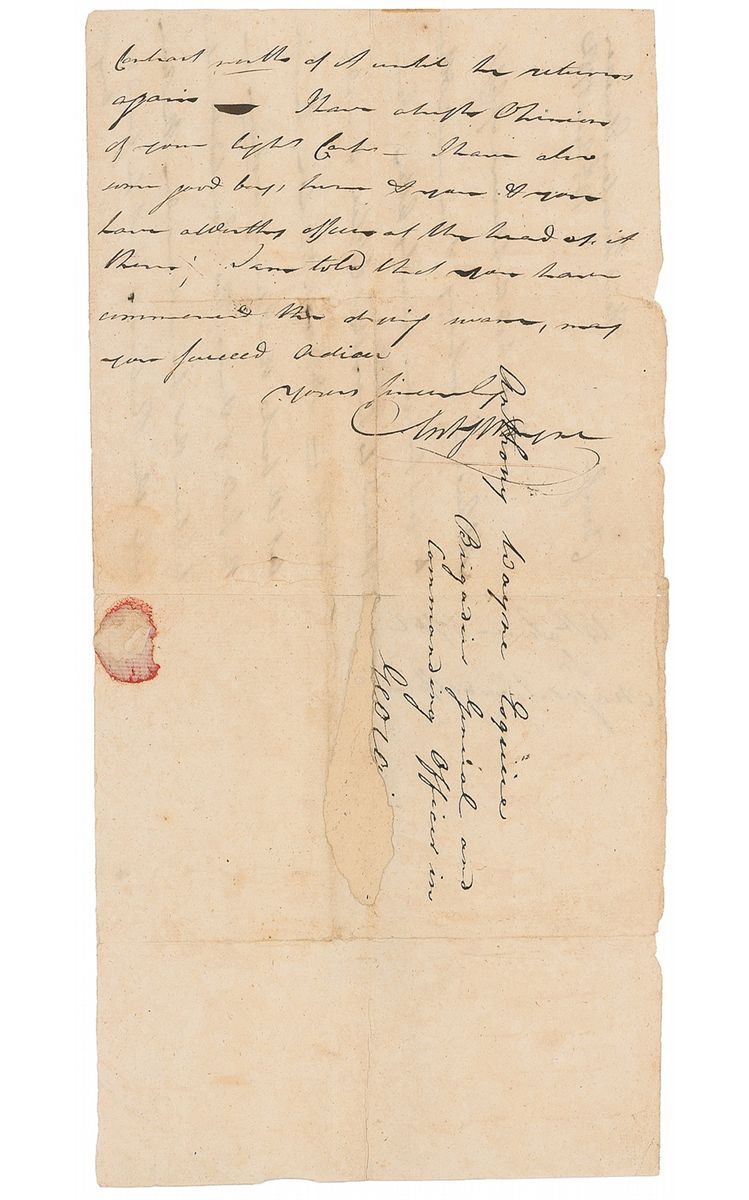 Contract north of it until he returns
again — I have a high Opinion
of your light Corps — I have also
some good boys here & you
have a Worthy officer at the head of it
there; I am told that you have
commenced the dying, may
you succeed Adieu
Yours Sincerely
Anty Wayne
Anthony Wayne Esquire
Brigadier General and
Commanding Officer in
Geo